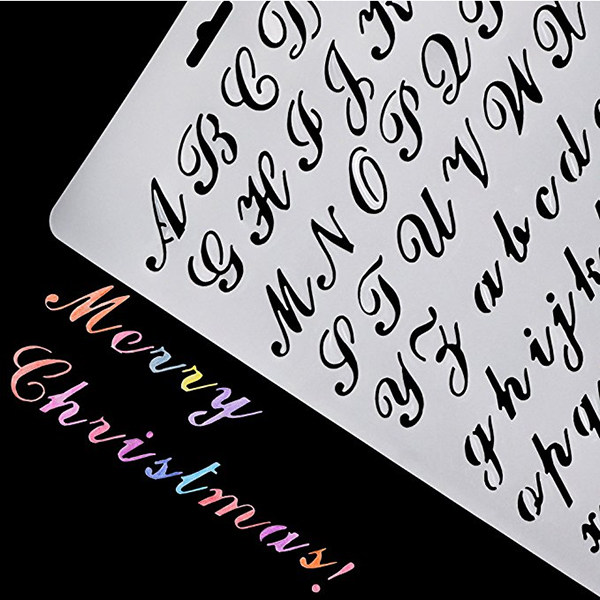 A B C D
G H I J K
M N O P Q R
S T U V W X
Y Z a b c d
g h i j k
o p q
x
Merry
Christmas!